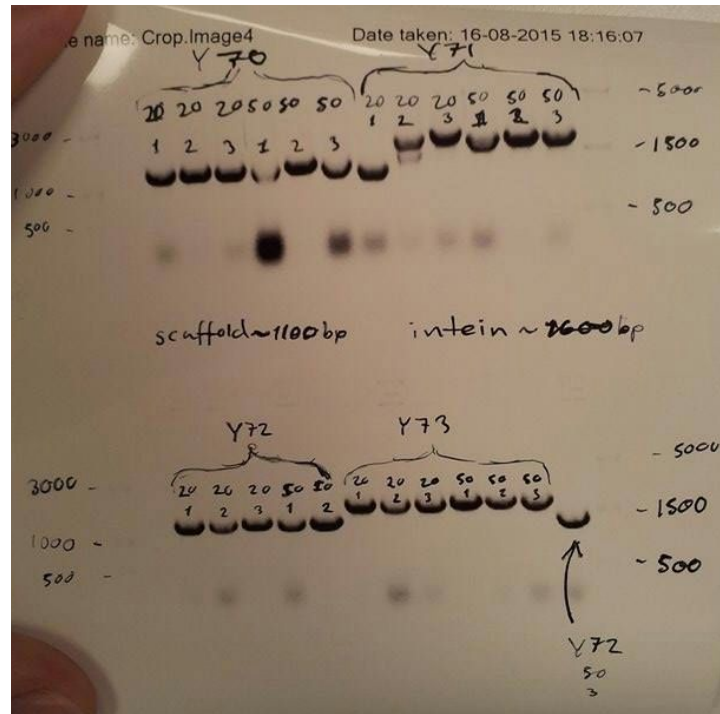 e name: Crop.Image4 Date taken: 16-08-2015 18:16:07
Y 70 Y71
20 20 20 50 50 50 20 20 20 50 50 50
1 2 3 1 2 3 1 2 3 1 2 3
3000 - - 5000
1000 - - 1500
500 - - 500
scaffold ~1100bp intein ~ bp
Y72 Y73
20 20 20 50 50 20 20 20 50 50 50
1 2 3 1 2 1 2 3 1 2 3
3000 - - 5000
1000 - - 1500
500 - - 500
Y72
50
3